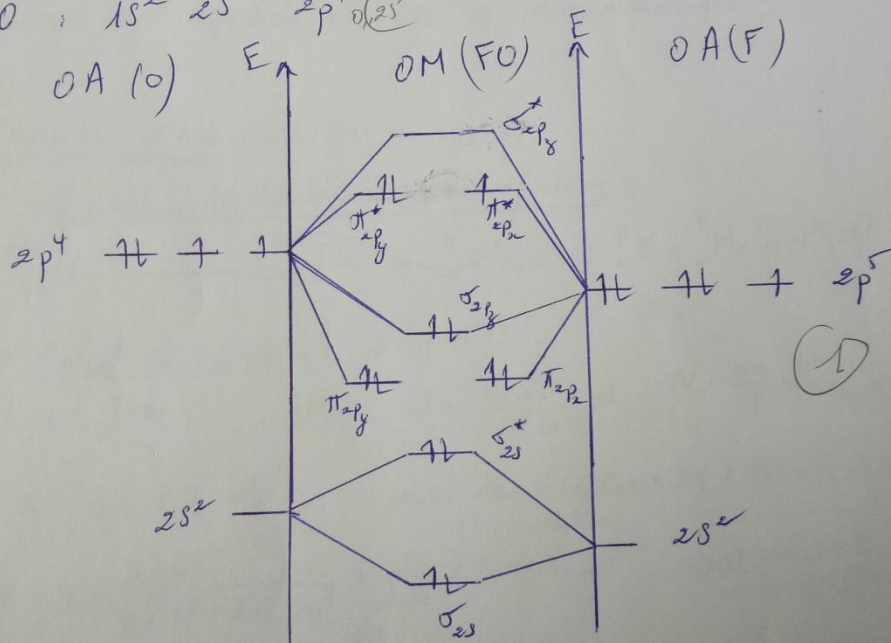 O : 1s² 2s 2p
OA (O) E OM (FO) E OA (F)
σ*2pz
π*2py π*2px
2p⁴ 2p⁵
σ2pz
1
π2py π2px
σ*2s
2s² 2s²
σ2s